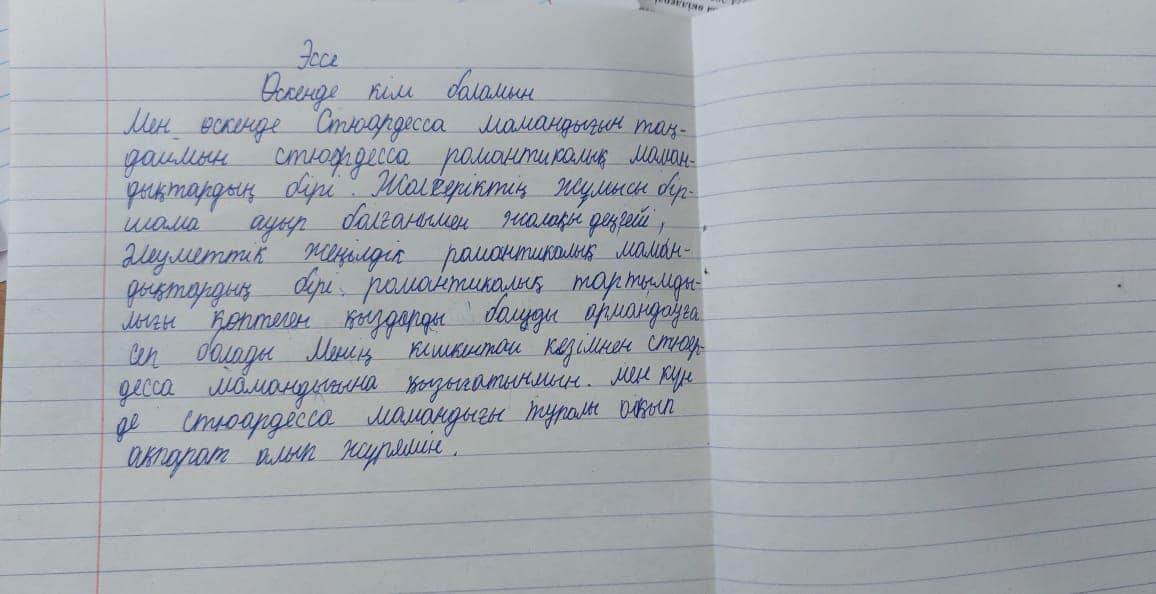 Эссе
Өскенде кім боламын
Мен өскенде Стюардесса мамандығын таң-
даймын стюрдесса романтикалық маман-
дықтардың бірі. Жолсеріктің жұмысы бір-
шама ауыр болғанымен жалақы деңгейі,
Әлеуметтік жеңілдік романтикалық маман-
дықтардың бірі. романтикалық тартымды-
лығы көптеген қыздарды болуды армандауға
сеп болады Менің кішкентай кезімнен стюар-
десса мамандығына қызығатынмын. мен күн
де стюардесса мамандығы туралы оқып
ақпарат алып жүрямін.